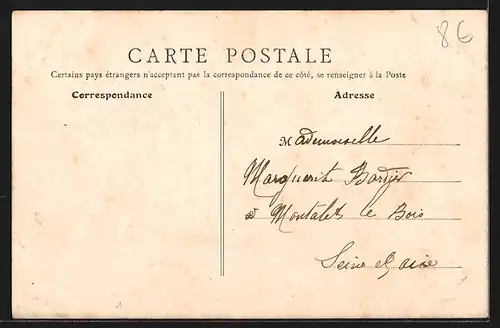 86
CARTE POSTALE
Certains pays étrangers n'acceptant pas la correspondance de ce côté, se renseigner à la Poste
Correspondance
Adresse
Mademoiselle
Marguerit Bardier
à Montalet le Bois
Seine et Oise